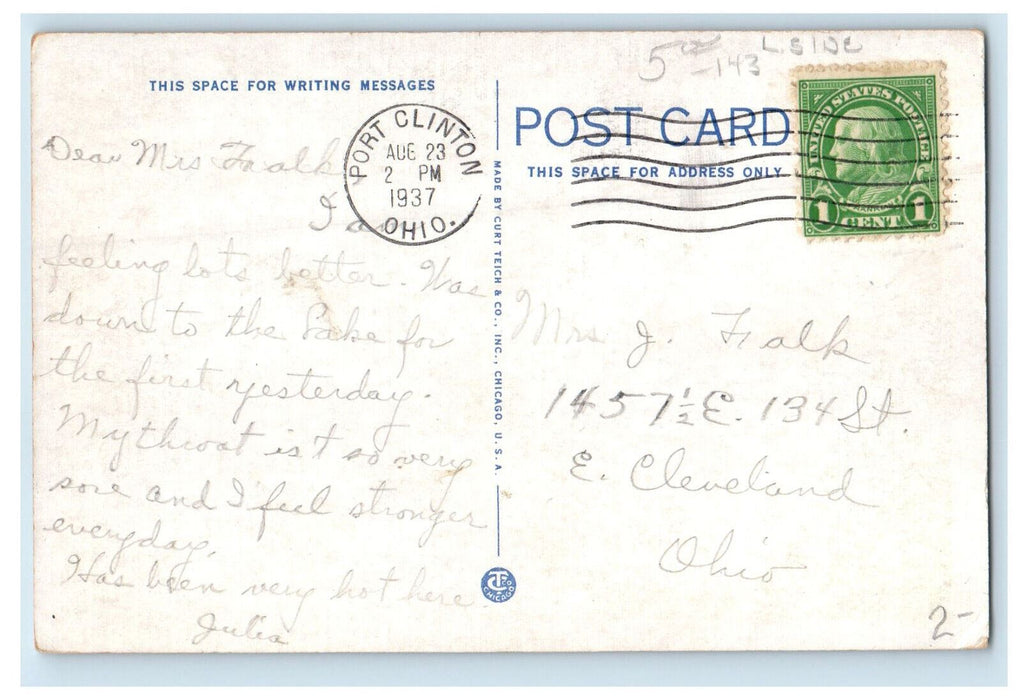 5 00 -143 LSIDE
THIS SPACE FOR WRITING MESSAGES
Dear Mrs Falk,
I am
feeling lots better. Was
down to the Lake for
the first yesterday.
My throat is't so very
sore and I feel stronger
everyday.
Has been very hot here
Julia
PORT CLINTON
AUG 23
2 PM
1937
OHIO.
MADE BY CURT TEICH & CO., INC., CHICAGO, U.S.A.
CT CO
CHICAGO
POST CARD
THIS SPACE FOR ADDRESS ONLY
UNITED STATES POSTAGE
FRANKLIN
1 CENT 1
Mrs J. Falk
1457½ E. 134 St.
E. Cleveland
Ohio
2-